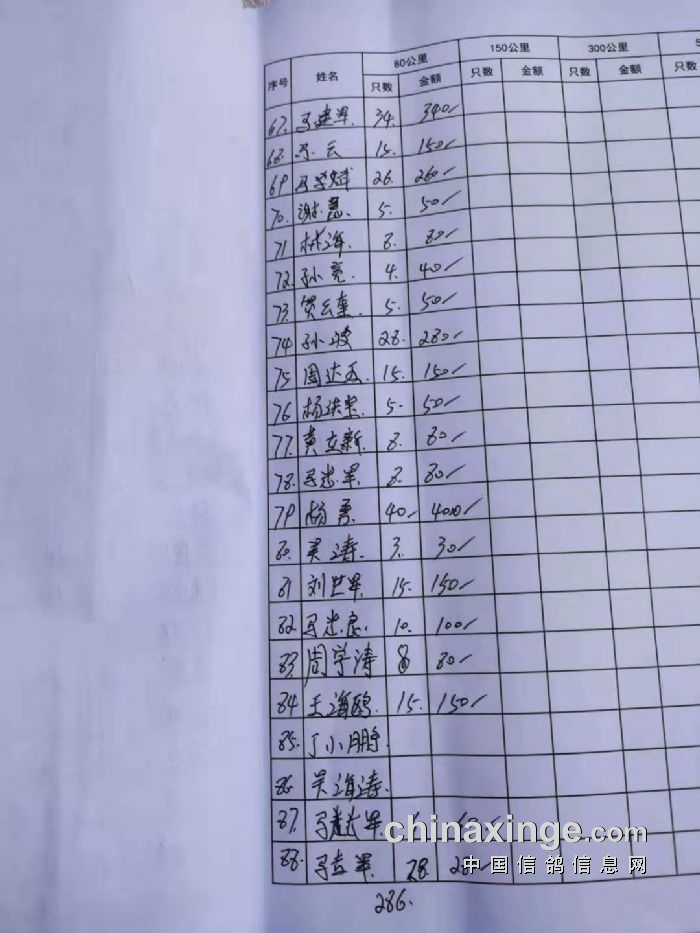 序号 姓名 80公里 150公里 300公里 5
只数 金额 只数 金额 只数 金额 只数
67. 马建军. 34. 340/
68. 马云 15. 150/
69 马学斌 26. 260/
70. 谢慧. 5. 50/
71 林海. 8. 80/
72. 孙亮. 4. 40/
73. 贺云奎. 5. 50/
74 孙波 28. 280/
75 周达 15. 150/
76 杨洪 5. 50/
77. 黄立新. 8. 80/
78. 马志军. 8. 80/
79 杨勇 40/ 400/
80. 吴涛. 3. 30/
81 刘世军. 15. 150/
82 马忠良. 10. 100/
83. 周学涛 8 80/
84 王海鸥. 15. 150/
85. 丁小鹏
86 吴海涛.
87. 马赵军
88. 马吉军. 28. 28
286.
chinaxinge.com
中国信鸽信息网